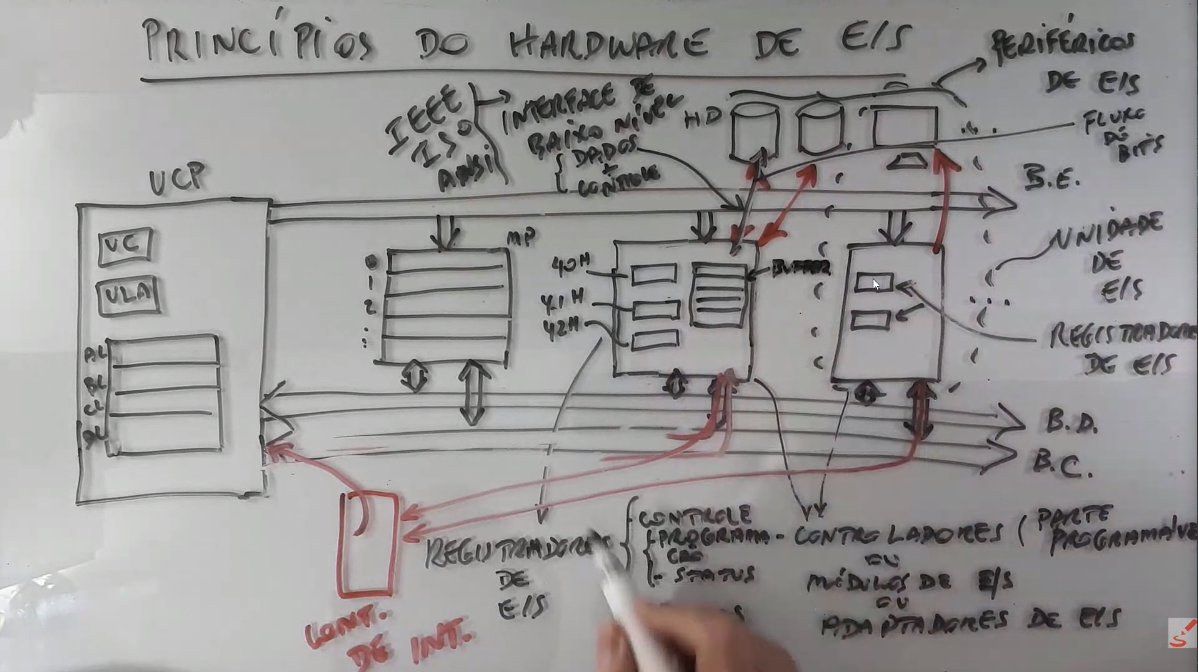 PRINCÍPIOS DO HARDWARE DE E/S
PERIFÉRICOS
DE E/S
IEEE
ISO
ANSI
INTERFACE DE
BAIXO NÍVEL
DADOS
E
CONTROLE
HD
FLUXO
DE
BITS
UCP
B.E.
UC
ULA
AL
BL
CL
DL
MP
0
1
2
:
40H
41H
42H
BUFFER
UNIDADE
DE
E/S
REGISTRADORES
DE E/S
B.D.
B.C.
CONT.
DE INT.
REGISTRADORES
DE
E/S
CONTROLE
PROGRAMA-
ÇÃO
- STATUS
- CONTROLADORES (PARTE
PROGRAMÁVE
OU
MÓDULOS DE E/S
OU
ADAPTADORES DE E/S
S